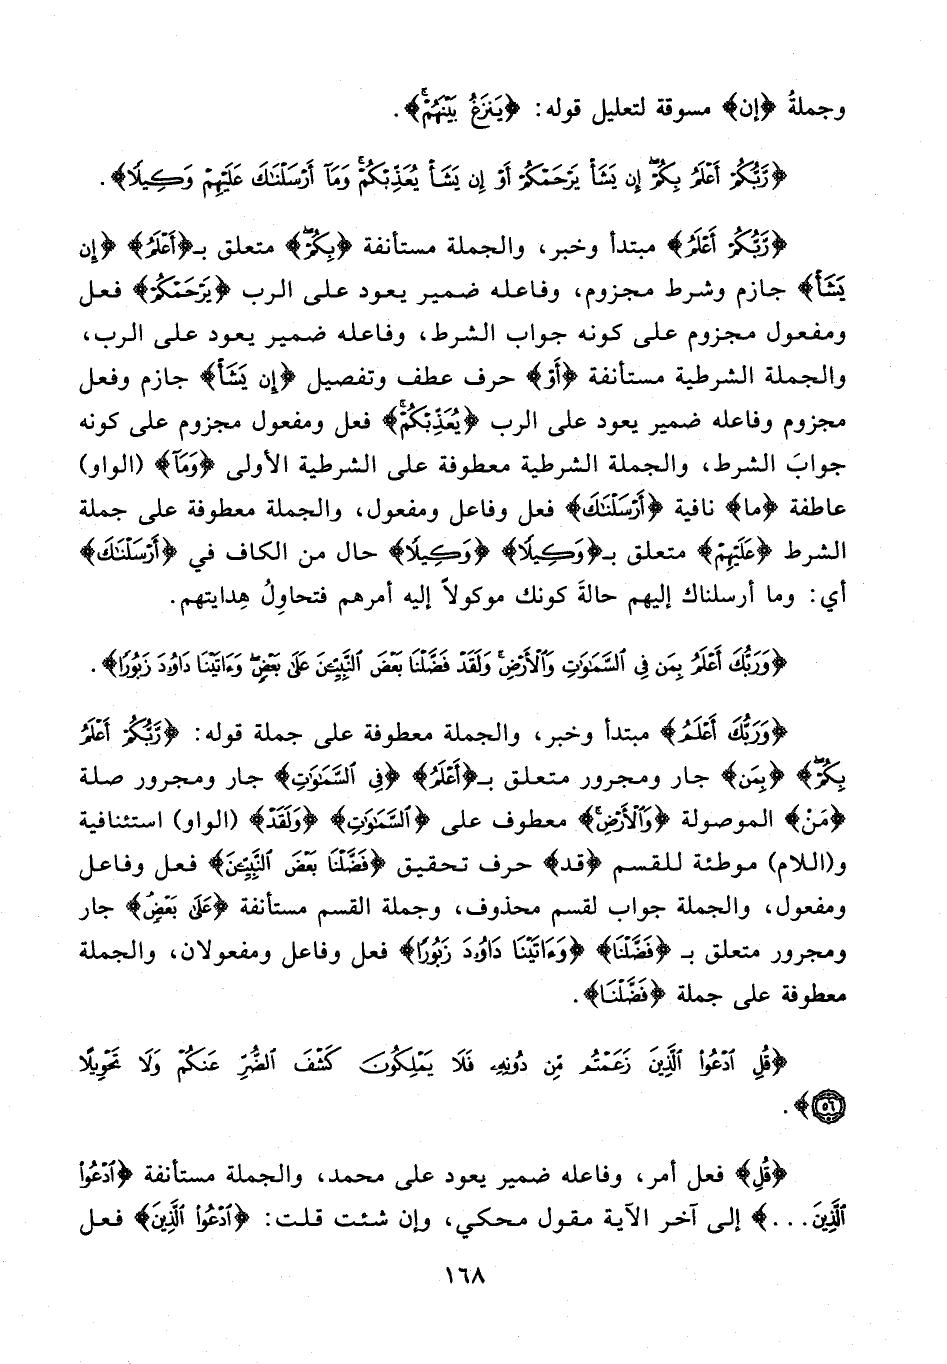 وجملةُ ﴿إن﴾ مسوقة لتعليل قوله: ﴿يَنزَغُ بَيْنَهُمْ﴾.
﴿رَّبُّكُمْ أَعْلَمُ بِكُمْ إِن يَشَأْ يَرْحَمْكُمْ أَوْ إِن يَشَأْ يُعَذِّبْكُمْ وَمَا أَرْسَلْنَاكَ عَلَيْهِمْ وَكِيلًا﴾.
﴿رَّبُّكُمْ أَعْلَمُ﴾ مبتدأ وخبر، والجملة مستأنفة ﴿بِكُمْ﴾ متعلق بـ﴿أَعْلَمُ﴾ ﴿إِن
يَشَأْ﴾ جازم وشرط مجزوم، وفاعله ضمير يعود على الرب ﴿يَرْحَمْكُمْ﴾ فعل
ومفعول مجزوم على كونه جواب الشرط، وفاعله ضمير يعود على الرب،
والجملة الشرطية مستأنفة ﴿أَوْ﴾ حرف عطف وتفصيل ﴿إِن يَشَأْ﴾ جازم وفعل
مجزوم وفاعله ضمير يعود على الرب ﴿يُعَذِّبْكُمْ﴾ فعل ومفعول مجزوم على كونه
جوابَ الشرط، والجملة الشرطية معطوفة على الشرطية الأولى ﴿وَمَآ﴾ (الواو)
عاطفة ﴿ما﴾ نافية ﴿أَرْسَلْنَاكَ﴾ فعل وفاعل ومفعول، والجملة معطوفة على جملة
الشرط ﴿عَلَيْهِمْ﴾ متعلق بـ﴿وَكِيلًا﴾ ﴿وَكِيلًا﴾ حال من الكاف في ﴿أَرْسَلْنَاكَ﴾
أي: وما أرسلناك إليهم حالةَ كونك موكولاً إليه أمرهم فتحاوِلُ هِدايتهم.
﴿وَرَبُّكَ أَعْلَمُ بِمَن فِي السَّمَاوَاتِ وَالْأَرْضِ وَلَقَدْ فَضَّلْنَا بَعْضَ النَّبِيِّينَ عَلَى بَعْضٍ وَءَاتَيْنَا دَاوُدَ زَبُورًا﴾.
﴿وَرَبُّكَ أَعْلَمُ﴾ مبتدأ وخبر، والجملة معطوفة على جملة قوله: ﴿رَّبُّكُمْ أَعْلَمُ
بِكُمْ﴾ ﴿بِمَن﴾ جار ومجرور متعلق بـ﴿أَعْلَمُ﴾ ﴿فِي السَّمَاوَاتِ﴾ جار ومجرور صلة
﴿مَنْ﴾ الموصولة ﴿وَالْأَرْضِ﴾ معطوف على ﴿السَّمَاوَاتِ﴾ ﴿وَلَقَدْ﴾ (الواو) استئنافية
و(اللام) موطئة للقسم ﴿قد﴾ حرف تحقيق ﴿فَضَّلْنَا بَعْضَ النَّبِيِّينَ﴾ فعل وفاعل
ومفعول، والجملة جواب لقسم محذوف، وجملة القسم مستأنفة ﴿عَلَى بَعْضٍ﴾ جار
ومجرور متعلق بـ ﴿فَضَّلْنَا﴾ ﴿وَءَاتَيْنَا دَاوُدَ زَبُورًا﴾ فعل وفاعل ومفعولان، والجملة
معطوفة على جملة ﴿فَضَّلْنَا﴾.
﴿قُلِ ادْعُوا الَّذِينَ زَعَمْتُم مِّن دُونِهِ فَلَا يَمْلِكُونَ كَشْفَ الضُّرِّ عَنكُمْ وَلَا تَحْوِيلًا
٥٦﴾.
﴿قُلِ﴾ فعل أمر، وفاعله ضمير يعود على محمد، والجملة مستأنفة ﴿ادْعُوا
الَّذِينَ...﴾ إلى آخر الآية مقول محكي، وإن شئت قلت: ﴿ادْعُوا الَّذِينَ﴾ فعل
١٦٨